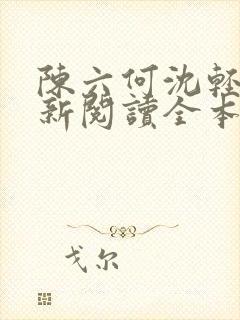 陳六何沈輕
新閱讀全本
戈尔